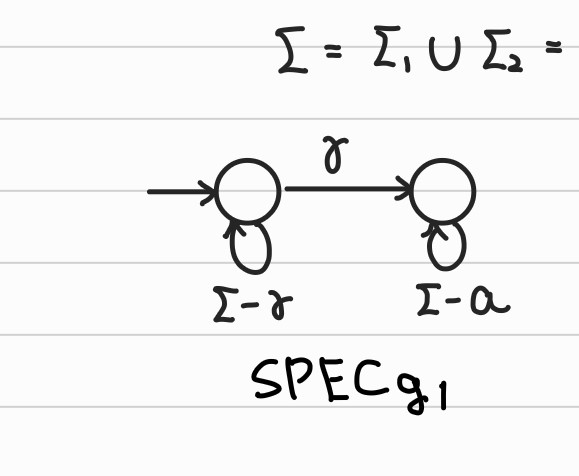 Σ = Σ₁ ∪ Σ₂ =
γ
Σ-γ Σ-a
SPECg₁